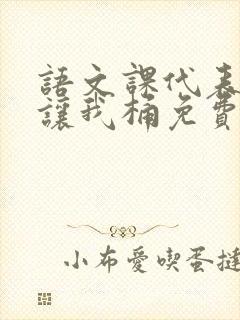 語文課代表
讓我桶免費
小布愛喫蛋撻